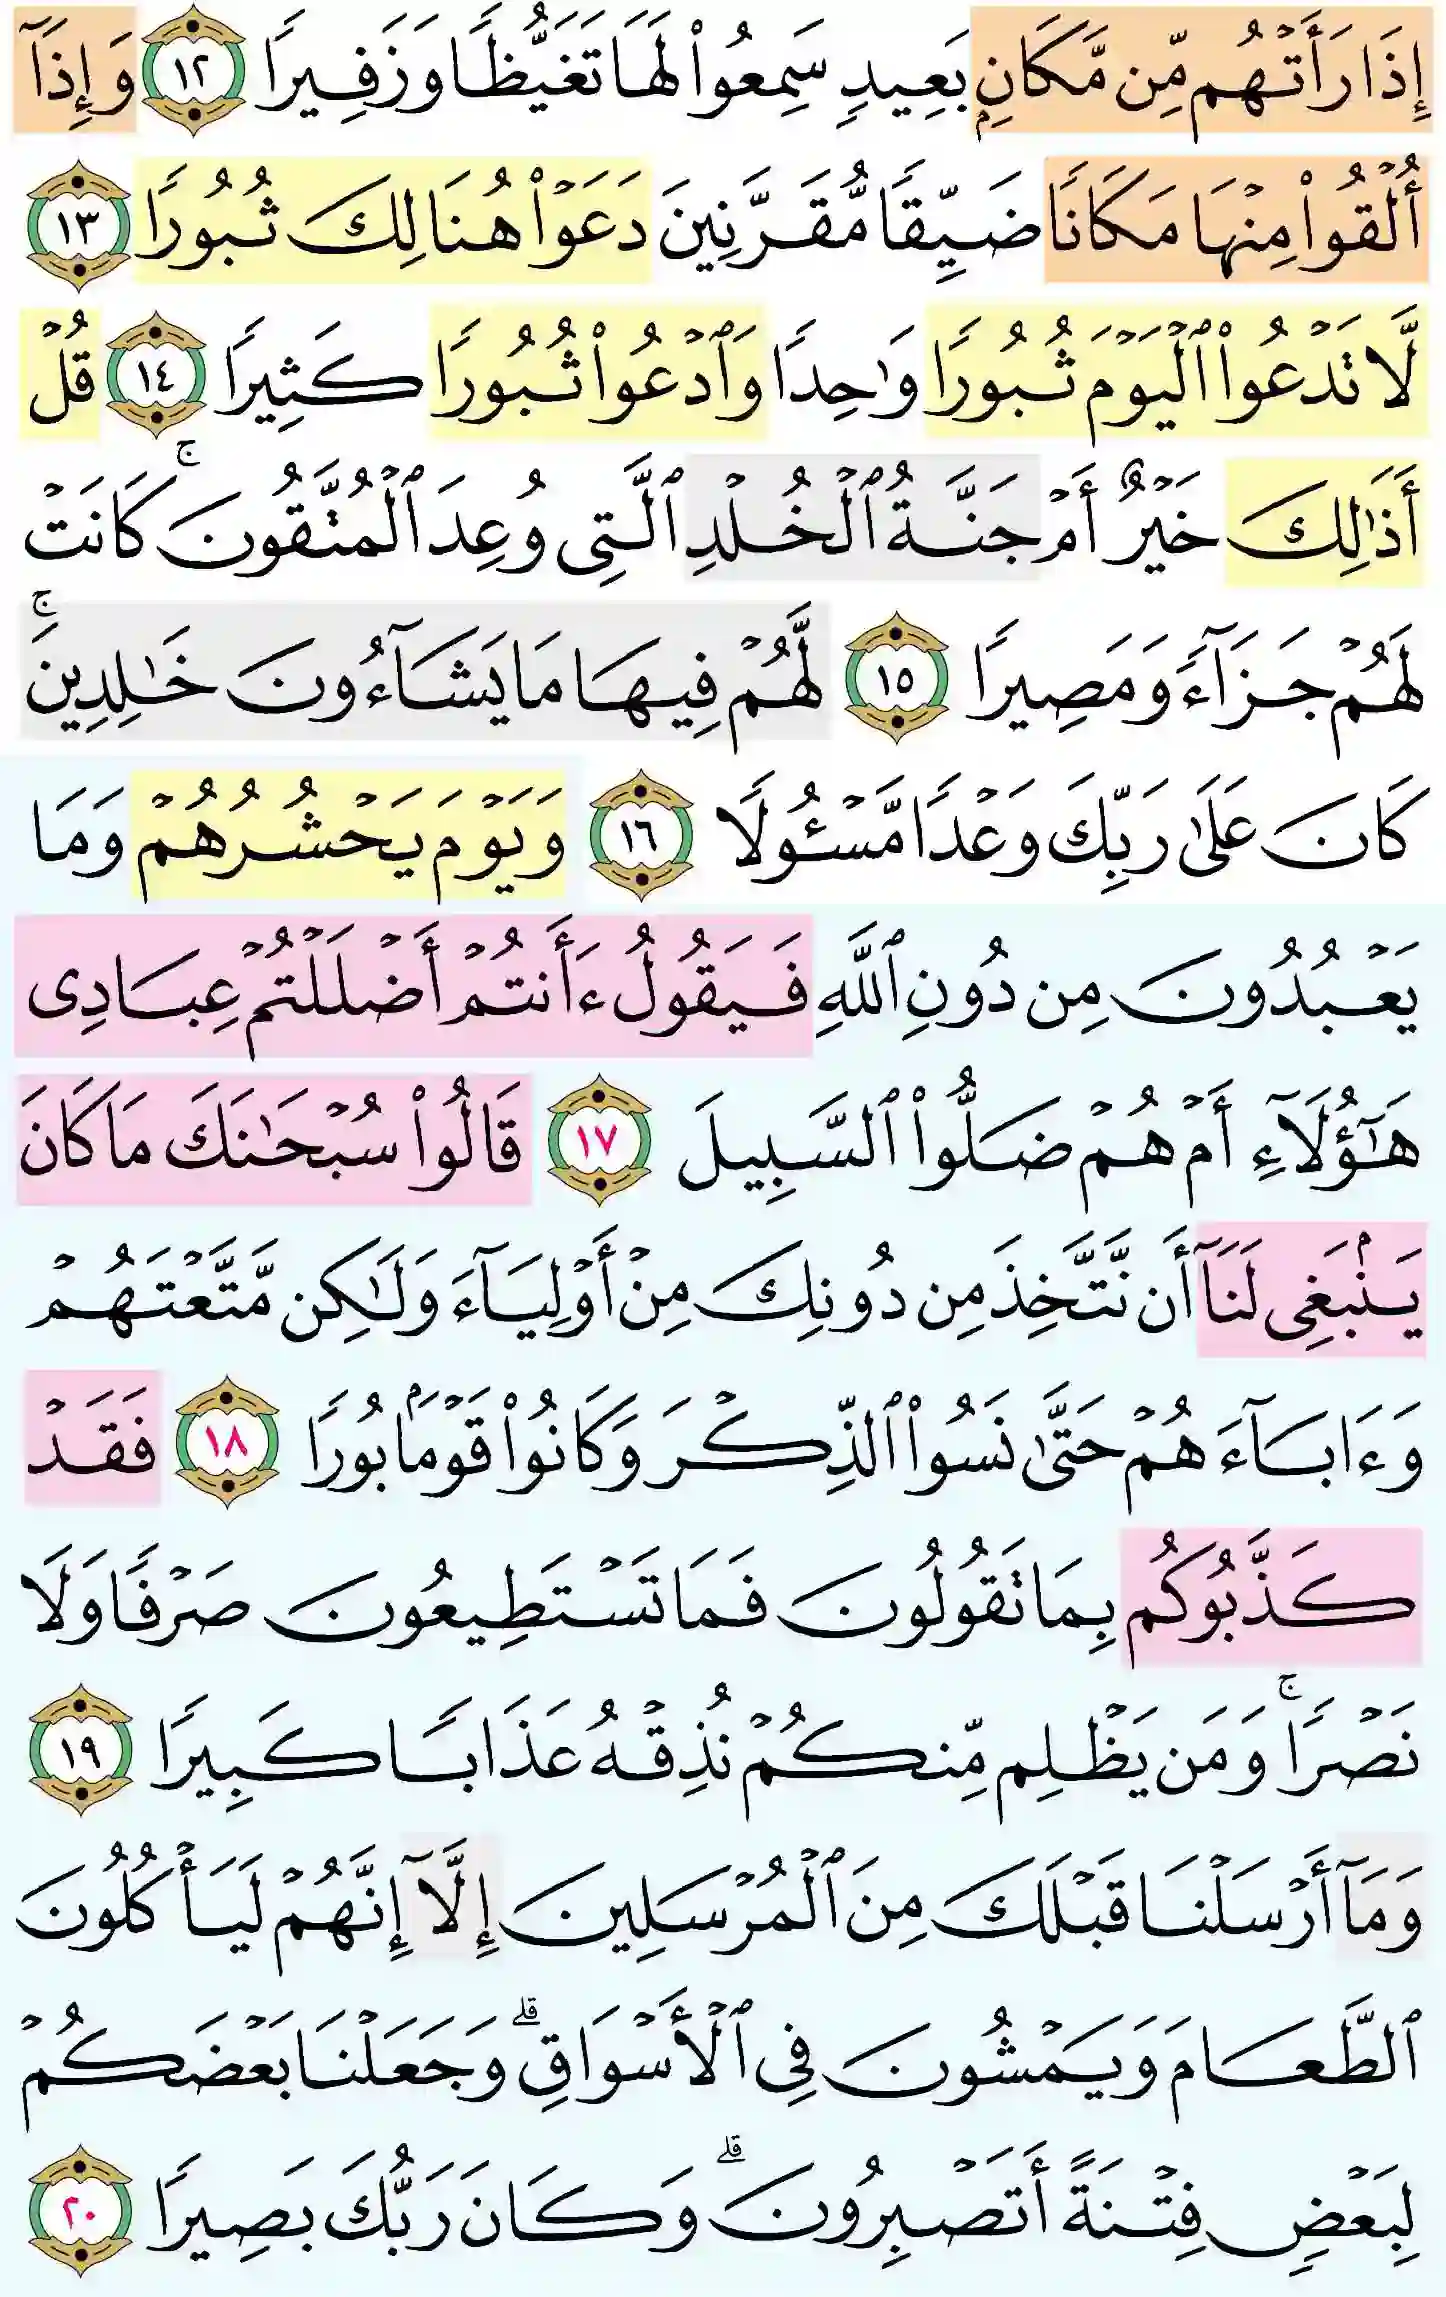 إِذَا رَأَتْهُم مِّن مَّكَانِۭ بَعِيدٍ سَمِعُوا۟ لَهَا تَغَيُّظًا وَزَفِيرًا ١٢ وَإِذَآ
أُلْقُوا۟ مِنْهَا مَكَانًا ضَيِّقًا مُّقَرَّنِينَ دَعَوْا۟ هُنَالِكَ ثُبُورًا ١٣
لَّا تَدْعُوا۟ ٱلْيَوْمَ ثُبُورًا وَٰحِدًا وَٱدْعُوا۟ ثُبُورًا كَثِيرًا ١٤ قُلْ
أَذَٰلِكَ خَيْرٌ أَمْ جَنَّةُ ٱلْخُلْدِ ٱلَّتِى وُعِدَ ٱلْمُتَّقُونَ ۚ كَانَتْ
لَهُمْ جَزَآءً وَمَصِيرًا ١٥ لَّهُمْ فِيهَا مَا يَشَآءُونَ خَٰلِدِينَ ۚ
كَانَ عَلَىٰ رَبِّكَ وَعْدًا مَّسْـُٔولًا ١٦ وَيَوْمَ يَحْشُرُهُمْ وَمَا
يَعْبُدُونَ مِن دُونِ ٱللَّهِ فَيَقُولُ ءَأَنتُمْ أَضْلَلْتُمْ عِبَادِى
هَٰٓؤُلَآءِ أَمْ هُمْ ضَلُّوا۟ ٱلسَّبِيلَ ١٧ قَالُوا۟ سُبْحَٰنَكَ مَا كَانَ
يَنۢبَغِى لَنَآ أَن نَّتَّخِذَ مِن دُونِكَ مِنْ أَوْلِيَآءَ وَلَٰكِن مَّتَّعْتَهُمْ
وَءَابَآءَهُمْ حَتَّىٰ نَسُوا۟ ٱلذِّكْرَ وَكَانُوا۟ قَوْمًۢا بُورًا ١٨ فَقَدْ
كَذَّبُوكُم بِمَا تَقُولُونَ فَمَا تَسْتَطِيعُونَ صَرْفًا وَلَا
نَصْرًا ۚ وَمَن يَظْلِم مِّنكُمْ نُذِقْهُ عَذَابًا كَبِيرًا ١٩
وَمَآ أَرْسَلْنَا قَبْلَكَ مِنَ ٱلْمُرْسَلِينَ إِلَّآ إِنَّهُمْ لَيَأْكُلُونَ
ٱلطَّعَامَ وَيَمْشُونَ فِى ٱلْأَسْوَاقِ ۗ وَجَعَلْنَا بَعْضَكُمْ
لِبَعْضٍ فِتْنَةً أَتَصْبِرُونَ ۗ وَكَانَ رَبُّكَ بَصِيرًا ٢٠